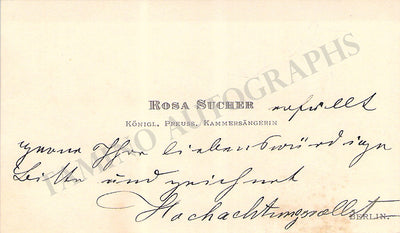 Rosa Sucher erfüllt
Königl. Preuss. Kammersängerin
gerne Ihre liebenswürdige
Bitte und zeichnet
Hochachtungsvollst
Berlin.
TAMINO AUTOGRAPHS